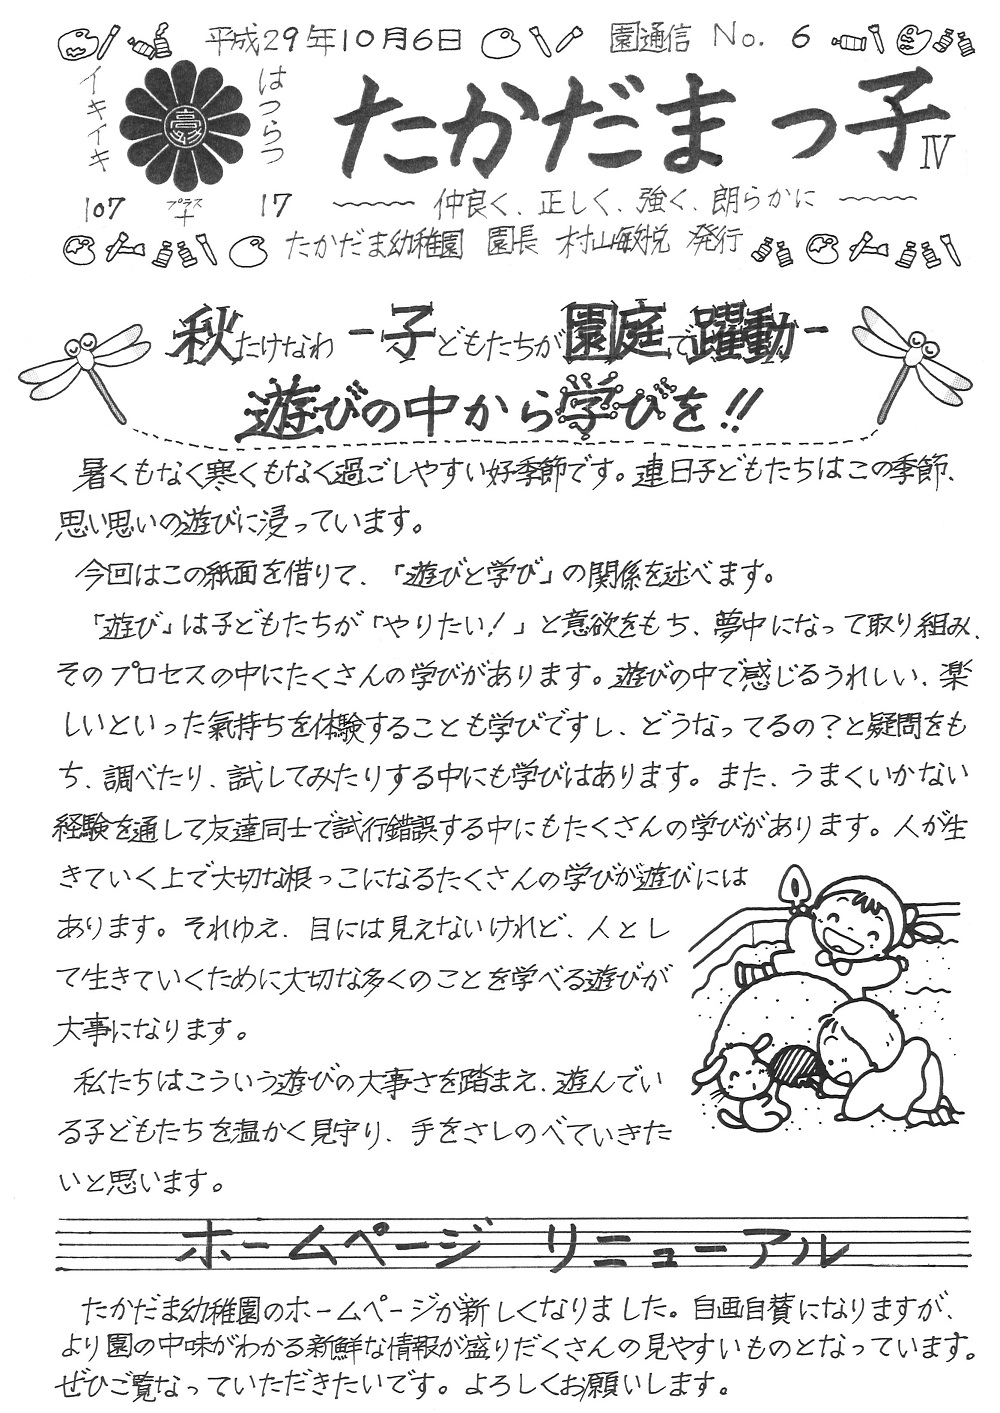 平成29年10月6日 園通信 No. 6
イキイキ はつらつ
たかだまっ子 Ⅳ
107 プラス + 17
仲良く、正しく、強く、朗らかに
たかだま幼稚園 園長 村山敏悦 発行
秋たけなわ －子どもたちが園庭で躍動－
遊びの中から学びを!!
暑くもなく寒くもなく過ごしやすい好季節です。連日子どもたちはこの季節、
思い思いの遊びに浸っています。
今回はこの紙面を借りて、「遊びと学び」の関係を述べます。
「遊び」は子どもたちが「やりたい!」と意欲をもち、夢中になって取り組み、
そのプロセスの中にたくさんの学びがあります。遊びの中で感じるうれしい、楽
しいといった氣持ちを体験することも学びですし、どうなってるの?と疑問をも
ち、調べたり、試してみたりする中にも学びはあります。また、うまくいかない
経験を通して友達同士で試行錯誤する中にもたくさんの学びがあります。人が生
きていく上で大切な根っこになるたくさんの学びが遊びには
あります。それゆえ、目には見えないけれど、人とし
て生きていくために大切な多くのことを学べる遊びが
大事になります。
私たちはこういう遊びの大事さを踏まえ、遊んでい
る子どもたちを温かく見守り、手をさしのべていきた
いと思います。
ホームページ リニューアル
たかだま幼稚園のホームページが新しくなりました。自画自賛になりますが、
より園の中味がわかる新鮮な情報が盛りだくさんの見やすいものとなっています。
ぜひご覧なっていただきたいです。よろしくお願いします。